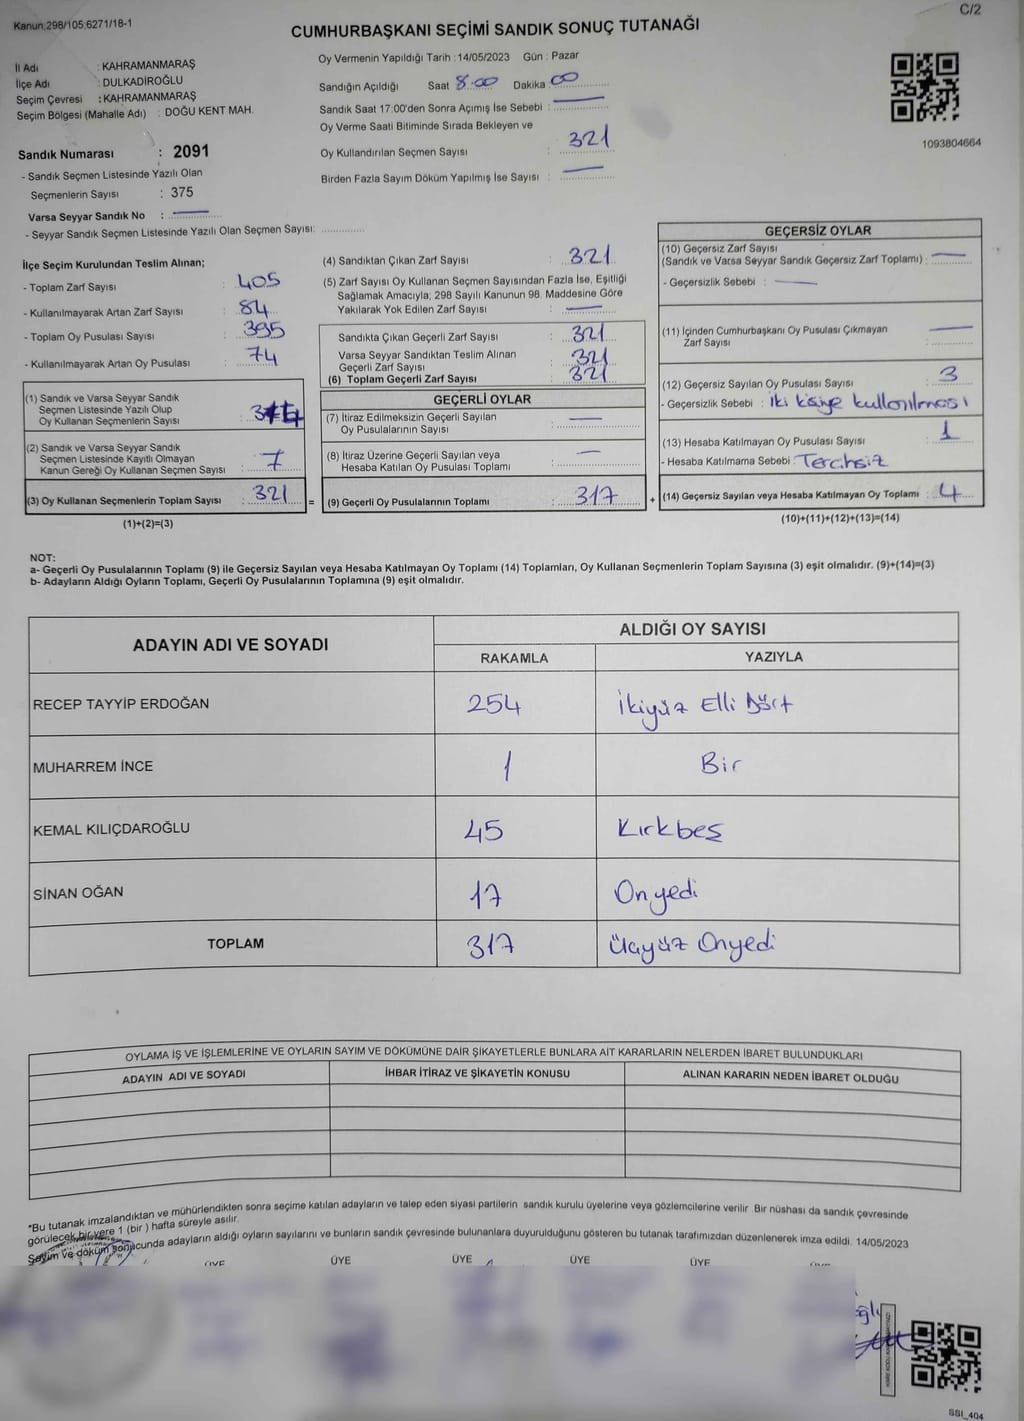 Kanun;298/105;6271/18-1
C/2
CUMHURBAŞKANI SEÇİMİ SANDIK SONUÇ TUTANAĞI
İl Adı : KAHRAMANMARAŞ
İlçe Adı : DULKADİROĞLU
Seçim Çevresi : KAHRAMANMARAŞ
Seçim Bölgesi (Mahalle Adı) : DOĞU KENT MAH.
Oy Vermenin Yapıldığı Tarih :14/05/2023 Gün : Pazar
Sandığın Açıldığı Saat 8.00 Dakika 00
Sandık Saat 17:00'den Sonra Açımış İse Sebebi :
Oy Verme Saati Bitiminde Sırada Bekleyen ve
Oy Kullandırılan Seçmen Sayısı : 321
Birden Fazla Sayım Döküm Yapılmış İse Sayısı :
1093804664
Sandık Numarası : 2091
- Sandık Seçmen Listesinde Yazılı Olan
Seçmenlerin Sayısı : 375
Varsa Seyyar Sandık No :
- Seyyar Sandık Seçmen Listesinde Yazılı Olan Seçmen Sayısı:
İlçe Seçim Kurulundan Teslim Alınan;
- Toplam Zarf Sayısı : 405
- Kullanılmayarak Artan Zarf Sayısı : 84
- Toplam Oy Pusulası Sayısı : 395
- Kullanılmayarak Artan Oy Pusulası : 74
(1) Sandık ve Varsa Seyyar Sandık
Seçmen Listesinde Yazılı Olup
Oy Kullanan Seçmenlerin Sayısı :
(2) Sandık ve Varsa Seyyar Sandık
Seçmen Listesinde Kayıtlı Olmayan
Kanun Gereği Oy Kullanan Seçmen Sayısı : 7
(3) Oy Kullanan Seçmenlerin Toplam Sayısı : 321 =
(1)+(2)=(3)
(4) Sandıktan Çıkan Zarf Sayısı : 321
(5) Zarf Sayısı Oy Kullanan Seçmen Sayısından Fazla İse, Eşitliği
Sağlamak Amacıyla; 298 Sayılı Kanunun 98. Maddesine Göre
Yakılarak Yok Edilen Zarf Sayısı :
Sandıkta Çıkan Geçerli Zarf Sayısı : 321
Varsa Seyyar Sandıktan Teslim Alınan
Geçerli Zarf Sayısı : 321
(6) Toplam Geçerli Zarf Sayısı : 321
GEÇERLİ OYLAR
(7) İtiraz Edilmeksizin Geçerli Sayılan
Oy Pusulalarının Sayısı :
(8) İtiraz Üzerine Geçerli Sayılan veya
Hesaba Katılan Oy Pusulası Toplamı :
(9) Geçerli Oy Pusulalarının Toplamı : 317 +
GEÇERSİZ OYLAR
(10) Geçersiz Zarf Sayısı
(Sandık ve Varsa Seyyar Sandık Geçersiz Zarf Toplamı) :
- Geçersizlik Sebebi :
(11) İçinden Cumhurbaşkanı Oy Pusulası Çıkmayan
Zarf Sayısı :
(12) Geçersiz Sayılan Oy Pusulası Sayısı : 3
- Geçersizlik Sebebi : iki kişiye kullanılması
(13) Hesaba Katılmayan Oy Pusulası Sayısı : 1
- Hesaba Katılmama Sebebi : Tercihsiz
(14) Geçersiz Sayılan veya Hesaba Katılmayan Oy Toplamı : 4
(10)+(11)+(12)+(13)=(14)
NOT:
a- Geçerli Oy Pusulalarının Toplamı (9) ile Geçersiz Sayılan veya Hesaba Katılmayan Oy Toplamı (14) Toplamları, Oy Kullanan Seçmenlerin Toplam Sayısına (3) eşit olmalıdır. (9)+(14)=(3)
b- Adayların Aldığı Oyların Toplamı, Geçerli Oy Pusulalarının Toplamına (9) eşit olmalıdır.
ADAYIN ADI VE SOYADI
ALDIĞI OY SAYISI
RAKAMLA YAZIYLA
RECEP TAYYİP ERDOĞAN 254 İkiyüz Elli Dört
MUHARREM İNCE 1 Bir
KEMAL KILIÇDAROĞLU 45 Kırkbeş
SİNAN OĞAN 17 Onyedi
TOPLAM 317 Üçyüz Onyedi
OYLAMA İŞ VE İŞLEMLERİNE VE OYLARIN SAYIM VE DÖKÜMÜNE DAİR ŞİKAYETLERLE BUNLARA AİT KARARLARIN NELERDEN İBARET BULUNDUKLARI
ADAYIN ADI VE SOYADI İHBAR İTİRAZ VE ŞİKAYETİN KONUSU ALINAN KARARIN NEDEN İBARET OLDUĞU
*Bu tutanak imzalandıktan ve mühürlendikten sonra seçime katılan adayların ve talep eden siyasi partilerin sandık kurulu üyelerine veya gözlemcilerine verilir. Bir nüshası da sandık çevresinde
görülecek bir yere 1 (bir ) hafta süreyle asılır.
Sayım ve döküm sonucunda adayların aldığı oyların sayılarını ve bunların sandık çevresinde bulunanlara duyurulduğunu gösteren bu tutanak tarafımızdan düzenlenerek imza edildi. 14/05/2023
ÜYE ÜYE ÜYE ÜYE ÜYE
SSI_404